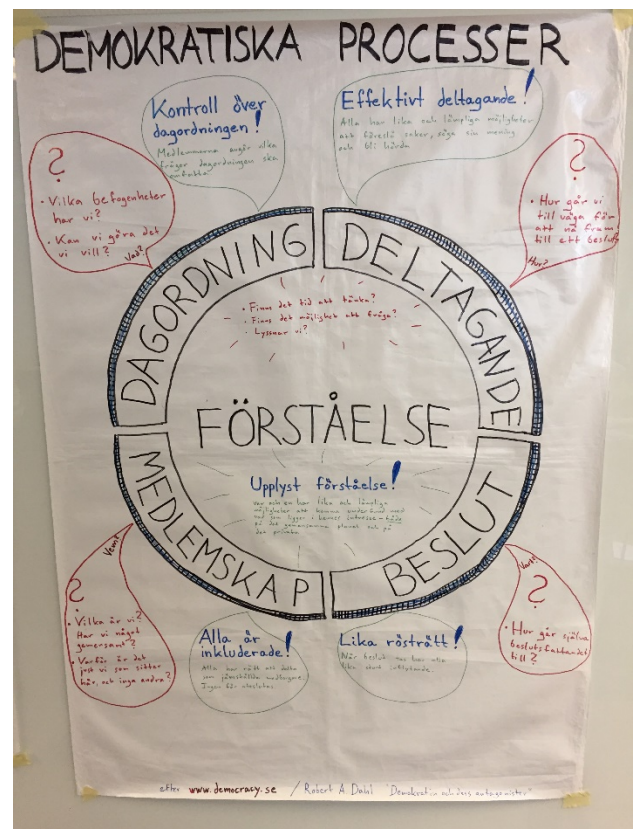 DEMOKRATISKA PROCESSER
Kontroll över
dagordningen!
Medlemmarna avgör vilka
frågor dagordningen ska
omfatta
Effektivt deltagande!
Alla har lika och lämpliga möjligheter
att föreslå saker, säga sin mening
och bli hörda
?
• Vilka befogenheter
har vi?
• Kan vi göra det
vi vill?
Vad?
?
• Hur går vi
till väga för
att nå fram
till ett beslut?
Hur?
DAGORDNING
DELTAGANDE
• Finns det tid att tänka?
• Finns det möjlighet att fråga?
• Lyssnar vi?
FÖRSTÅELSE
Upplyst förståelse!
Var och en har lika och lämpliga
möjligheter att komma underfund med
vad som ligger i hennes intresse - både
på det gemensamma planet och på
det privata
MEDLEMSKAP
BESLUT
Vem?
?
• Vilka är vi?
Har vi något
gemensamt?
• Varför är det
just vi som sitter
här, och inga andra?
Alla är
inkluderade!
Alla har rätt att delta
som jämställda medlemmar.
Ingen får uteslutas
Lika rösträtt!
När beslut tas har alla
lika stort inflytande.
?
• Hur går själva
beslutsfattandet
till?
efter www.democracy.se / Robert A Dahl "Demokratin och dess antagonister"